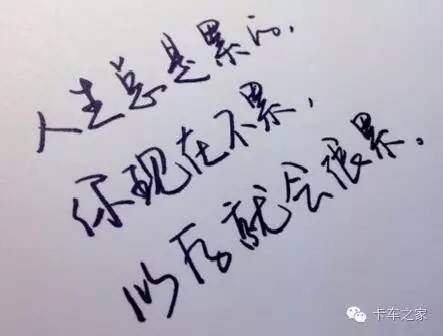 人生总是累的,
你现在不累,
以后就会很累.
卡车之家